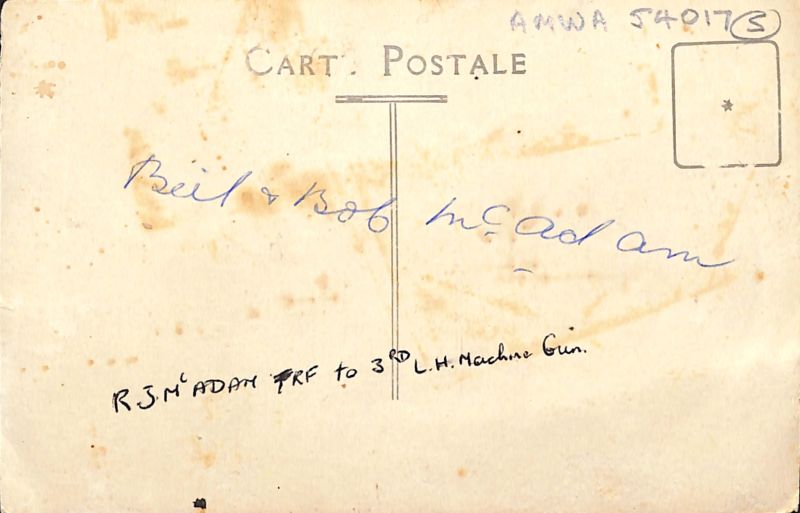 AMWA 54017 (5)
CART. POSTALE
Beil & Bob McAdam
R.J. McADAM TRF to 3RD L.H. Machine Gun.